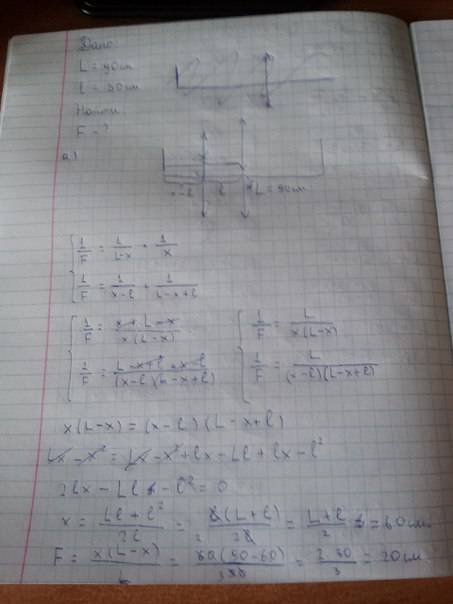 Дано:
L = 90см
l = 30см
Найти:
F - ?
а)
x-l l x L = 90см
1/F = 1/(L-x) + 1/x
1/F = 1/(x-l) + 1/(L-x+l)
1/F = (x+L-x)/(x(L-x)) 1/F = L/(x(L-x))
1/F = (L-x+l+x-l)/((x-l)(L-x+l)) 1/F = L/((x-l)(L-x+l))
x(L-x) = (x-l)(L-x+l)
Lx - x² = Lx - x² + lx - Ll + lx - l²
2lx - Ll - l² = 0
x = (Ll + l²)/2l = l(L+l)/2l = (L+l)/2 = 60см
F = x(L-x)/L = 60(90-60)/90 = 2·30/3 = 20см